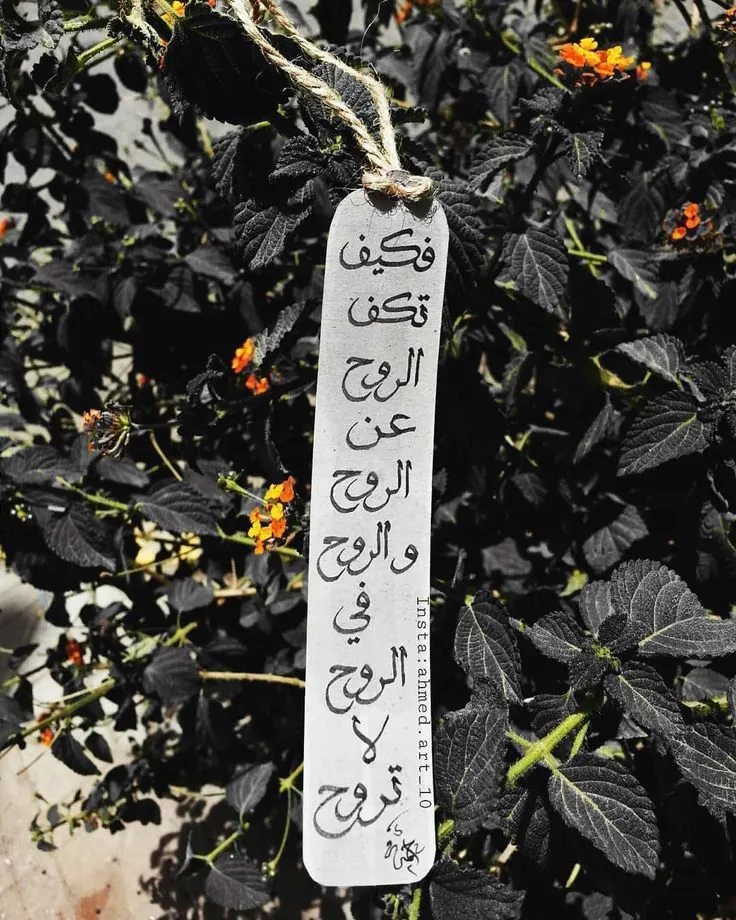 فكيف
تكف
الروح
عن
الروح
و الروح
في
الروح
لا
تروح
Insta:ahmed.art_10